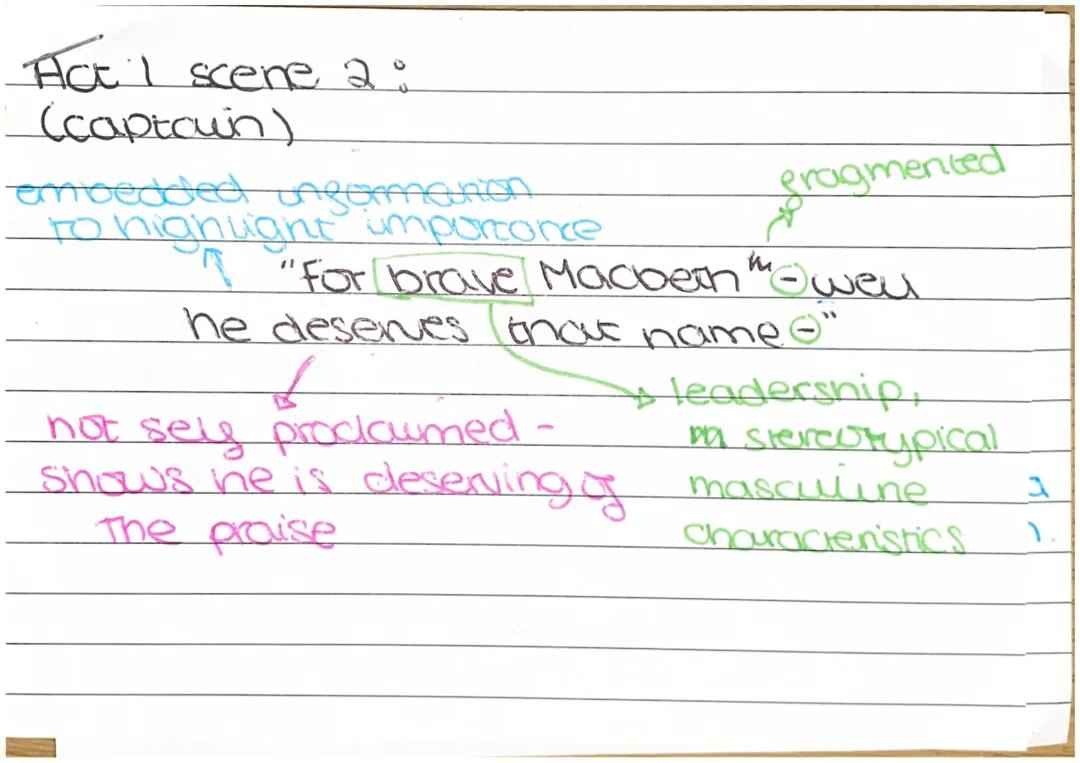 Act 1 scene 2:
(captain)
embedded information
to highlight importance
fragmented
"For brave Macbeth - well
he deserves that name -"
leadership,
stereotypical
masculine
characteristics
not self proclaimed -
shows he is deserving of
the praise
2
1.